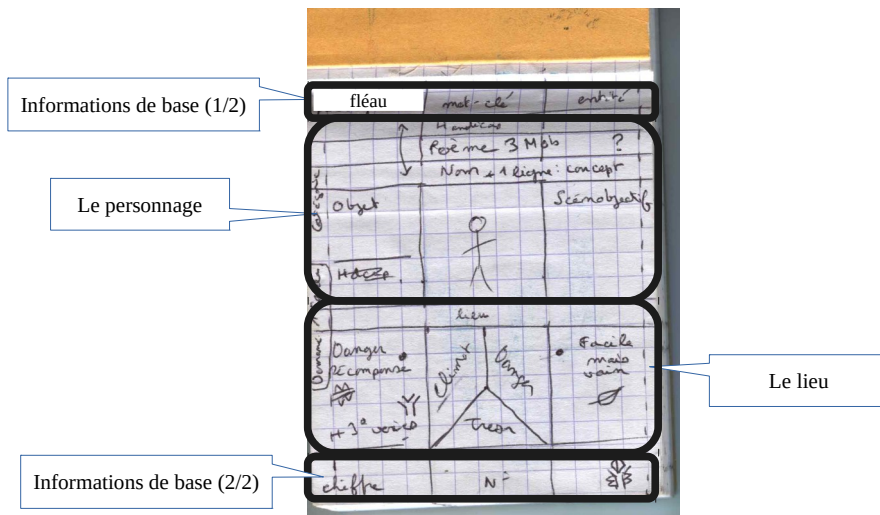 Informations de base (1/2)
fléau mot-clé entité
Handicap
Poème 3 Mob ?
Nom + 1 ligne : concept
Le personnage
Objet Scénobjectif
lieu
Danger
récompense
Climax
Danger
Facile
mais
vain
Le lieu
Tresor
Informations de base (2/2)
chiffre N°